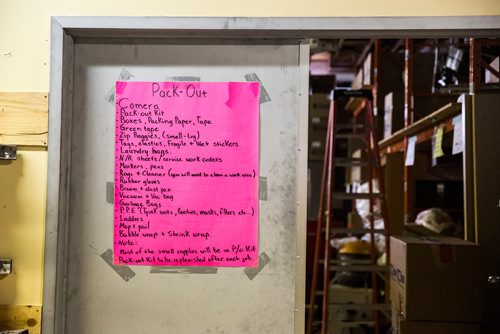 Pack-Out
- Camera
- Pack-out Kit
- Boxes, Packing Paper, Tape
- Green tape
- Zip Baggies, (small-Lrg)
- Tags, elastics, Fragile + Wet stickers.
- Laundry bags.
- N/R sheets/service work orders
- Markers, pens
- Rags + Cleaner (you will need to clean a work area)
- Rubber gloves
- Broom + dust pan
- Vacuum + Vac bag
- Garbage Bags
- P.P.E (tyvek suits, booties, masks, filters etc..)
- Ladders
- Mop + pail
- Bubble wrap + Shrink wrap.
- Note:
Most of the small supplies will be in P/O Kit
Pack-out Kit to be replenished after each job.